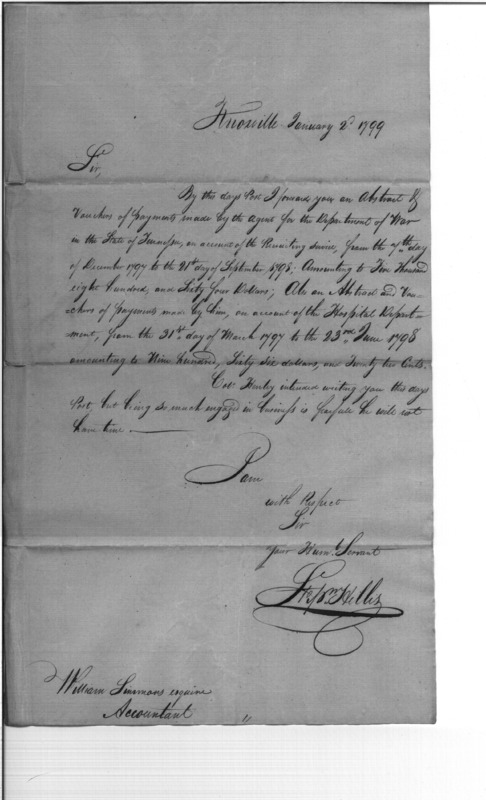 Knoxville January 2d 1799
Sir,
By this days Post I forward you an Abstract &
Vouchers of payments made by the Agent for the Department of War
in the State of Tennessee, on account of the Recruiting Service, from the 7th day
of December 1797 to the 21st day of September 1798. Amounting to Ten Thousand
eight hundred, and Sixty four Dollars; Also an Abstract and Vou-
chers of payments made by him, on account of the Hospital Depart-
ment, from the 31st day of March 1797 to the 23rd June 1798
amounting to Nine hundred, Sixty Six dollars, on Twenty two Cents.
Col. Henley intended writing you this days
Post, but being so much engaged in business is fearfull he will not
have time.
I am
with Respect
Sir
your Huml. Servant
Hillis
William Simmons esquire
Accountant